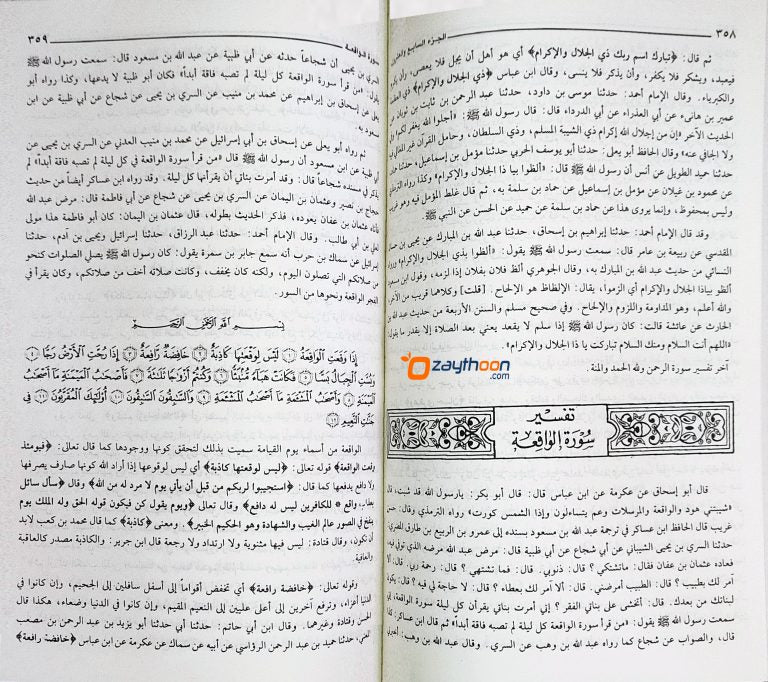 ٣٥٨
الجزء السابع والعشرون
ثم قال: ﴿تبارك اسم ربك ذي الجلال والإكرام﴾ أي هو أهل أن يجل فلا يعصى، وأن يكرم
فيعبد، ويشكر فلا يكفر، وأن يذكر فلا ينسى، وقال ابن عباس ﴿ذي الجلال والإكرام﴾ ذي العظمة
والكبرياء. وقال الإمام أحمد: حدثنا موسى بن داود، حدثنا عبد الرحمن بن ثابت بن ثوبان عن
عمير بن هانىء عن أبي العذراء عن أبي الدرداء قال: قال رسول الله ﷺ: «أجلوا الله يغفر لكم» وفي
الحديث الآخر «إن من إجلال الله إكرام ذي الشيبة المسلم، وذي السلطان، وحامل القرآن غير الغالي فيه
ولا الجافي عنه» وقال الحافظ أبو يعلى: حدثنا أبو يوسف الحربي حدثنا مؤمل بن إسماعيل، حدثنا حماد
حدثنا حميد الطويل عن أنس أن رسول الله ﷺ قال: «ألظوا بيا ذا الجلال والإكرام» وكذا رواه الترمذي
عن محمود بن غيلان عن مؤمل بن إسماعيل عن حماد بن سلمة به، ثم قال غلط المؤمل فيه وهو غريب
وليس بمحفوظ، وإنما يروى هذا عن حماد بن سلمة عن حميد عن الحسن عن النبي ﷺ.
وقد قال الإمام أحمد: حدثنا إبراهيم بن إسحاق، حدثنا عبد الله بن المبارك عن يحيى بن حسان
المقدسي عن ربيعة بن عامر قال: سمعت رسول الله ﷺ يقول: «ألظوا بذي الجلال والإكرام» ورواه
النسائي من حديث عبد الله بن المبارك به، وقال الجوهري ألظ فلان بفلان إذا لزمه، وقول ابن مسعود
ألظوا بياذا الجلال والإكرام أي الزموا، يقال: الإلظاظ هو الإلحاح. [قلت] وكلاهما قريب من الآخر،
والله أعلم، وهو المداومة واللزوم والإلحاح. وفي صحيح مسلم والسنن الأربعة من حديث عبد الله بن
الحارث عن عائشة قالت: كان رسول الله ﷺ إذا سلم لا يقعد يعني بعد الصلاة إلا بقدر ما يقول:
«اللهم أنت السلام ومنك السلام تباركت يا ذا الجلال والإكرام».
آخر تفسير سورة الرحمن ولله الحمد والمنة.
تفسير
سورة الواقعة
قال أبو إسحاق عن عكرمة عن ابن عباس قال: قال أبو بكر: يارسول الله قد شبت، قال
«شيبتني هود والواقعة والمرسلات وعم يتساءلون وإذا الشمس كورت» رواه الترمذي وقال: حسن
غريب قال الحافظ ابن عساكر في ترجمة عبد الله بن مسعود بسنده إلى عمرو بن الربيع بن طارق المصري:
حدثنا السري بن يحيى الشيباني عن أبي شجاع عن أبي ظبية قال: مرض عبد الله مرضه الذي توفي فيه
فعاده عثمان بن عفان فقال: ماتشتكي؟ قال: ذنوبي. قال: فما تشتهي؟ قال: رحمة ربي. قال: ألا
آمر لك بطبيب؟ قال: الطبيب أمرضني. قال: ألا آمر لك بعطاء؟ قال: لا حاجة لي فيه؟ قال: يكون
لبناتك من بعدك. قال: أتخشى على بناتي الفقر؟ إني أمرت بناتي يقرأن كل ليلة سورة الواقعة، إني
سمعت رسول الله ﷺ يقول: «من قرأ سورة الواقعة كل ليلة لم تصبه فاقة أبداً» ثم قال ابن عساكر: كذا
قال، والصواب عن شجاع كما رواه عبد الله بن وهب عن السري. وقال عبد الله بن وهب: أخبرني
سورة الواقعة
٣٥٩
السري بن يحيى أن شجاعاً حدثه عن أبي ظبية عن عبد الله بن مسعود قال: سمعت رسول الله ﷺ
يقول: «من قرأ سورة الواقعة كل ليلة لم تصبه فاقة أبداً» فكان أبو ظبية لا يدعها، وكذا رواه أبو
يعلى عن إسحاق بن إبراهيم عن محمد بن منيب عن السري بن يحيى عن شجاع عن أبي ظبية عن ابن
مسعود به.
ثم رواه أبو يعلى عن إسحاق بن أبي إسرائيل عن محمد بن منيب العدني عن السري بن يحيى عن
أبي ظبية عن ابن مسعود أن رسول الله ﷺ قال «من قرأ سورة الواقعة في كل ليلة لم تصبه فاقة أبداً» لم
يذكر في مسنده شجاعاً قال: وقد أمرت بناتي أن يقرأنها كل ليلة. وقد رواه ابن عساكر أيضاً من حديث
حجاج بن نصير وعثمان بن اليمان عن السري بن يحيى عن شجاع عن أبي فاطمة قال: مرض عبد الله
فأتاه عثمان بن عفان يعوده، فذكر الحديث بطوله، قال عثمان بن اليمان: كان أبو فاطمة هذا مولى
لعلي بن أبي طالب. وقال الإمام أحمد: حدثنا عبد الرزاق، حدثنا إسرائيل ويحيى بن آدم، حدثنا
إسرائيل عن سماك بن حرب أنه سمع جابر بن سمرة يقول: كان رسول الله ﷺ يصلي الصلوات كنحو
من صلاتكم التي تصلون اليوم، ولكنه كان يخفف، وكانت صلاته أخف من صلاتكم، وكان يقرأ في
الفجر الواقعة ونحوها من السور.
بسم الله الرحمن الرحيم
إِذَا وَقَعَتِ الْوَاقِعَةُ ۝١ لَيْسَ لِوَقْعَتِهَا كَاذِبَةٌ ۝٢ خَافِضَةٌ رَّافِعَةٌ ۝٣ إِذَا رُجَّتِ الْأَرْضُ رَجًّا ۝٤
وَبُسَّتِ الْجِبَالُ بَسًّا ۝٥ فَكَانَتْ هَبَاءً مُّنبَثًّا ۝٦ وَكُنتُمْ أَزْوَاجًا ثَلَاثَةً ۝٧ فَأَصْحَابُ الْمَيْمَنَةِ مَا أَصْحَابُ
الْمَيْمَنَةِ ۝٨ وَأَصْحَابُ الْمَشْئَمَةِ مَا أَصْحَابُ الْمَشْئَمَةِ ۝٩ وَالسَّابِقُونَ السَّابِقُونَ ۝١٠ أُولَٰئِكَ الْمُقَرَّبُونَ ۝١١ فِي
جَنَّاتِ النَّعِيمِ ۝١٢
الواقعة من أسماء يوم القيامة سميت بذلك لتحقق كونها ووجودها كما قال تعالى: ﴿فيومئذ
وقعت الواقعة﴾ قوله تعالى: ﴿ليس لوقعتها كاذبة﴾ أي ليس لوقوعها إذا أراد الله كونها صارف يصرفها
ولا دافع يدفعها كما قال: ﴿استجيبوا لربكم من قبل أن يأتي يوم لا مرد له من الله﴾ وقال ﴿سأل سائل
بعذاب واقع * للكافرين ليس له دافع﴾ وقال تعالى ﴿ويوم يقول كن فيكون قوله الحق وله الملك يوم
ينفخ في الصور عالم الغيب والشهادة وهو الحكيم الخبير﴾. ومعنى ﴿كاذبة﴾ كما قال محمد بن كعب لابد
أن تكون، وقال قتادة: ليس فيها مثنوية ولا ارتداد ولا رجعة قال ابن جرير: والكاذبة مصدر كالعاقبة
والعافية.
وقوله تعالى: ﴿خافضة رافعة﴾ أي تخفض أقواماً إلى أسفل سافلين إلى الجحيم، وإن كانوا في
الدنيا أعزاء، وترفع آخرين إلى أعلى عليين إلى النعيم المقيم، وإن كانوا في الدنيا وضعاء، هكذا قال
الحسن وقتادة وغيرهما. وقال ابن أبي حاتم: حدثنا أبي حدثنا أبو يزيد بن عبد الرحمن بن مصعب
المعنى، حدثنا حميد بن عبد الرحمن الرؤاسي عن أبيه عن سماك عن عكرمة عن ابن عباس ﴿خافضة رافعة﴾
zaythoon
.com